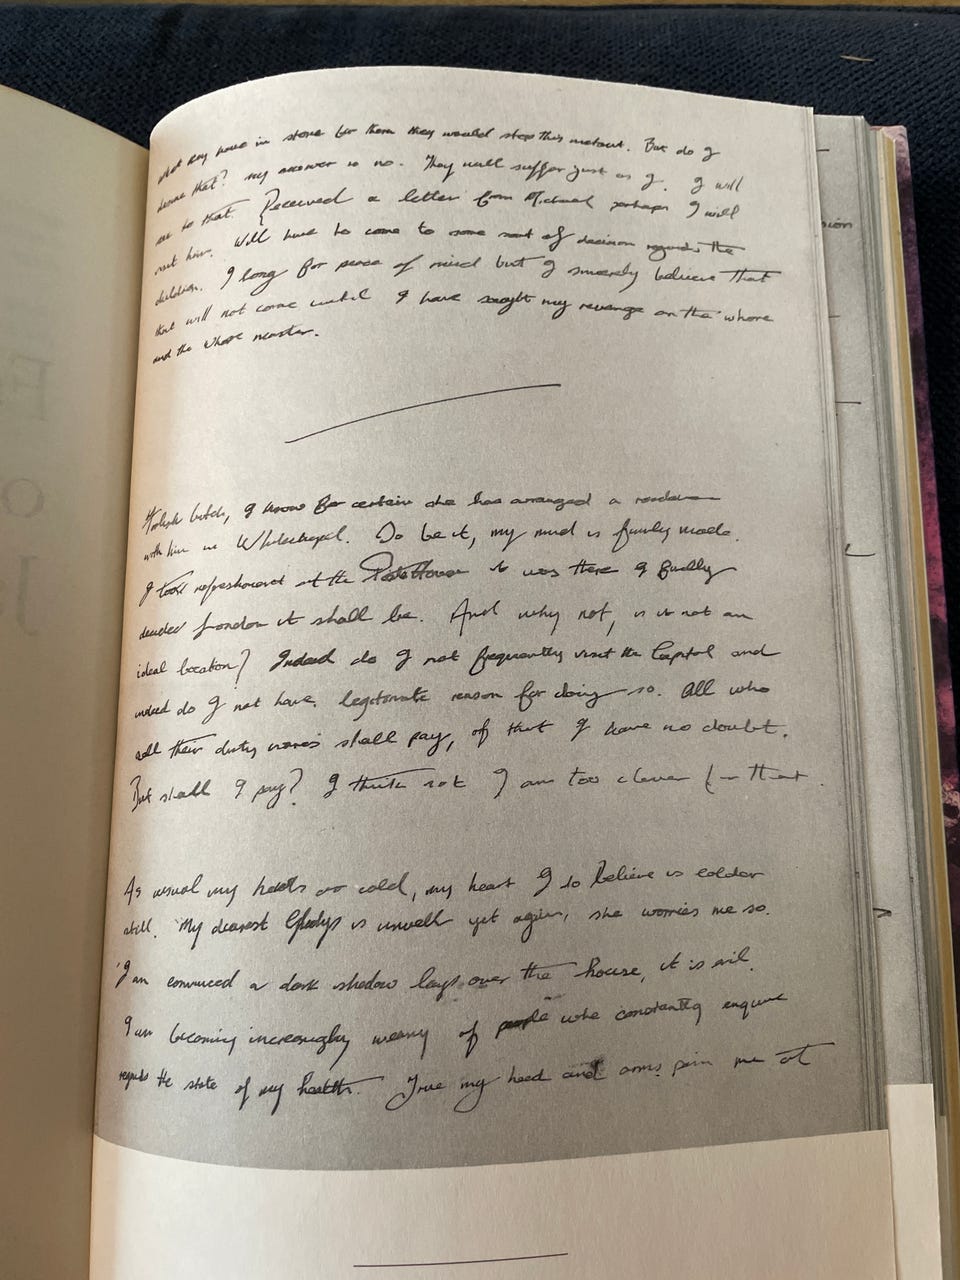 what they have in store for them they would stop this instant. But do I
desire that? my answer is no. They will suffer just as I. I will
see to that. Received a letter from Michael perhaps I will
visit him. Will have to come to some sort of decision regards the
children. I long for peace of mind but I sincerely believe that
that will not come until I have sought my revenge on the whore
and the whore master.
Foolish bitch, I know for certain she has arranged a rendezvous
with him in Whitechapel. So be it, my mind is firmly made.
I took refreshment at the Poste House it was there I finally
decided London it shall be. And why not, is it not an
ideal location? Indeed do I not frequently visit the Capital and
indeed do I not have legitimate reason for doing so. All who
sell their dirty wares shall pay, of that I have no doubt.
But shall I pay? I think not I am too clever for that
As usual my hands are cold, my heart I do believe is colder
still. My dearest Gladys is unwell yet again, she worries me so.
I am convinced a dark shadow lays over the house, it is evil.
I am becoming increasingly weary of people who constantly enquire
regards the state of my health. True my head and arms pain me at
sion